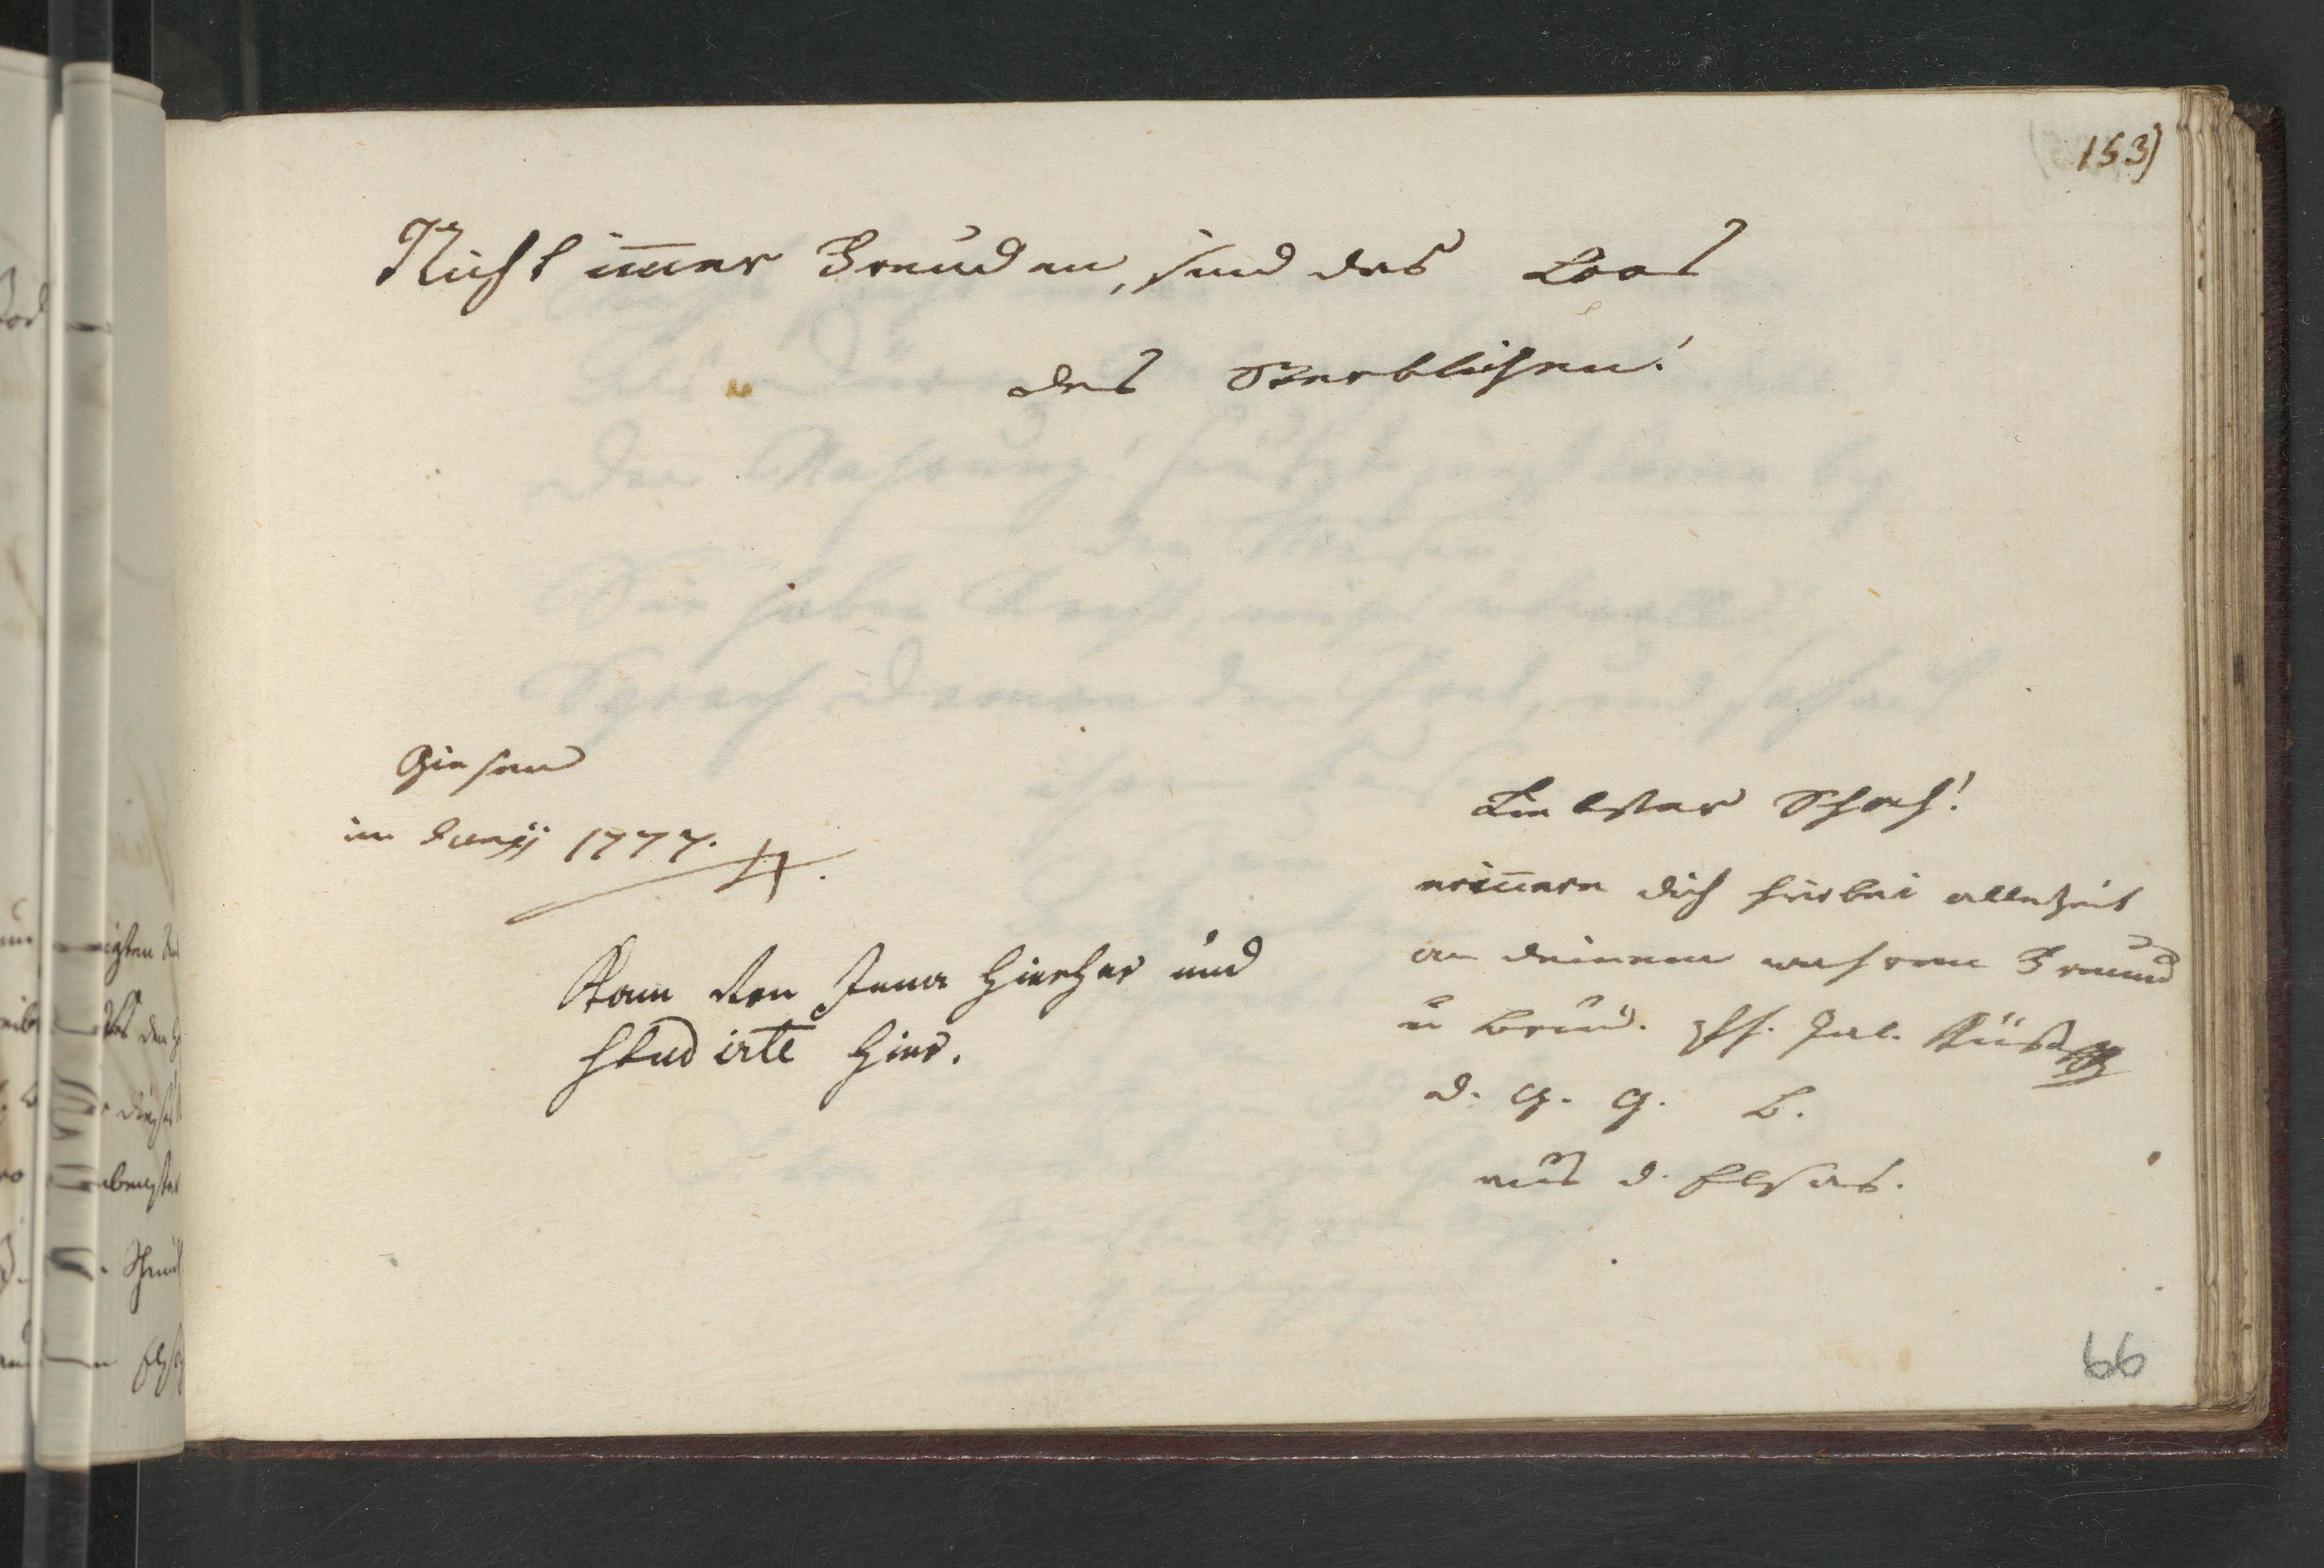 153)
Nicht im̄er Freuden, sind das Loos
des Sterblichen!
Giesen
im Junij 1777.
Kam von Jena hierher und
studirte hier.
Liebster Schach!
erin̄ere dich hierbei allezeit
an deinem wahren Freund
u Brud. Jul.
d. G. G. B.
aus d. Elsas.
66